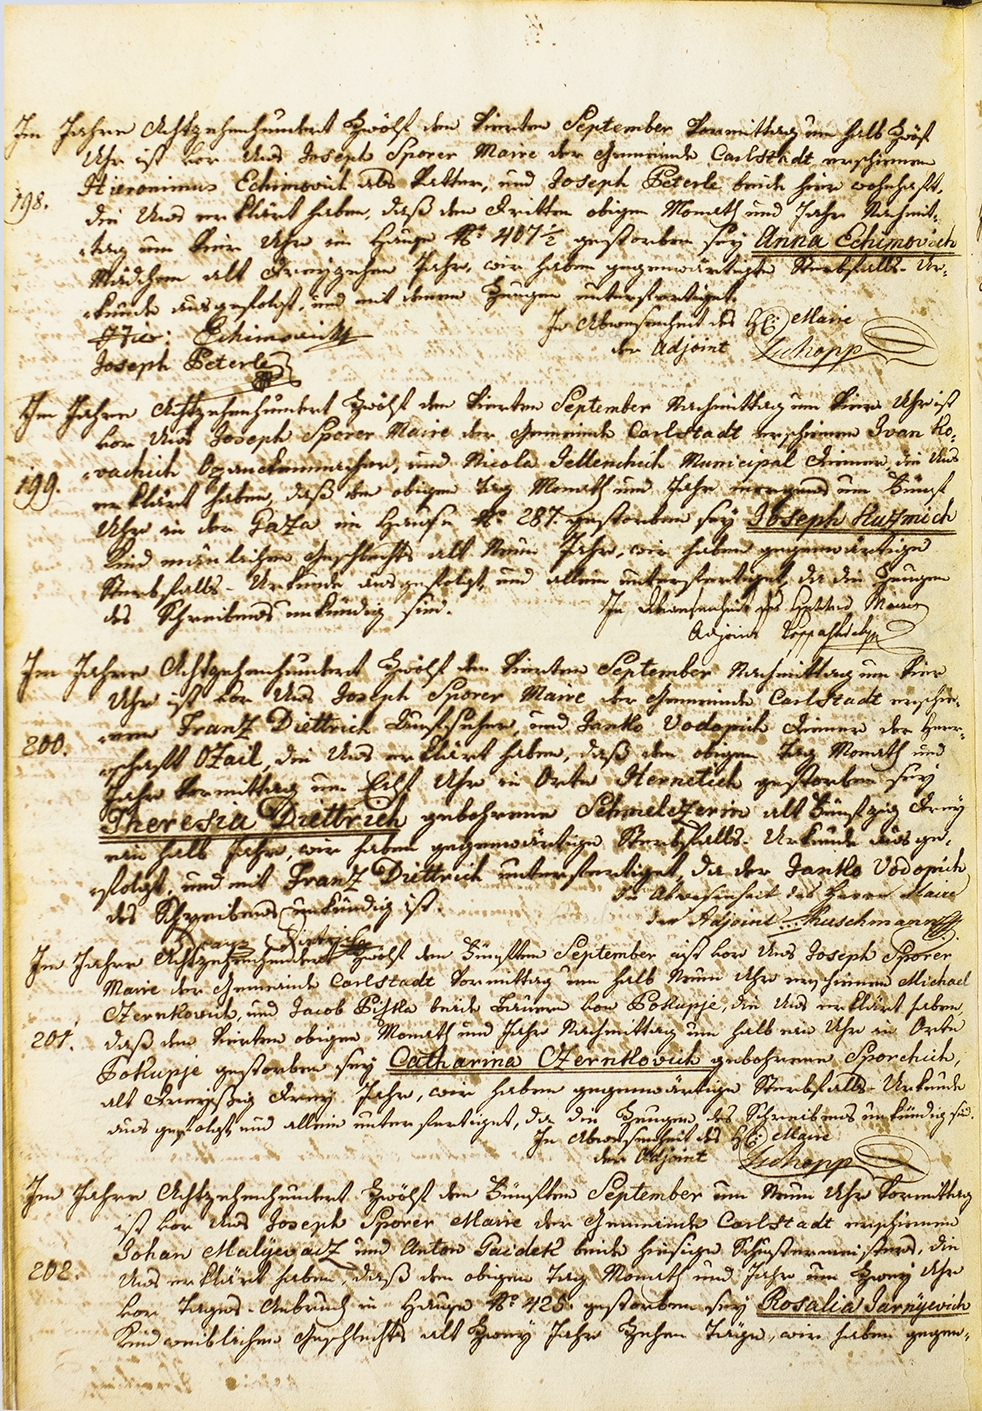 Im Jahre Achtzehenhundert Zwölf den Vierten September Vormittag um halb Zwölf
Uhr ist vor Uns Joseph Sporer Maire der Gemeinde Carlstadt erschienen
Hieronimus Echimovich als Vatter, und Joseph Peterle beide hier wohnhaft,
198.
die Uns erklärt haben, daß den Dritten obigen Monath und Jahr Nachmit-
tag um Vier Uhr im Hause No. 407 1/2 gestorben sey Anna Echimovich
Mädchen alt Dreyzehen Jahr, wir haben gegenwärtige Sterbfalls-Ur-
kunde ausgefolgt, und mit denen Zeugen unterfertiget.
Hier: Echimovich
In Abwesenheit des H: Maire
der Adjoint
Joseph Peterle
Im Jahre Achtzehenhundert Zwölf den Vierten September Nachmittag um Vier Uhr ist
vor Uns Joseph Sporer Maire der Gemeinde Carlstadt erschienen Ivan Ko-
vachich und Nicola Jellenchich Municipal Diener die Uns
199.
erklärt haben, daß den obigen Tag Monath und Jahr morgens um Fünf
Uhr in der Gaza im Hause No. 287. gestorben sey Joseph Kuzmich
Kind mänlichen Geschlechts alt Neun Jahr, wir haben gegenwärtige
Sterbfalls-Urkunde ausgefolgt, und allein unterfertiget, da die Zeugen
des Schreibens unkündig sin.
In Abwesenheit des Maire
Adjoint
Im Jahre Achtzehenhundert Zwölf den Vierten September Nachmittag um Vier
Uhr ist vor Uns Joseph Sporer Maire der Gemeinde Carlstadt erschie-
nen Franz Diettrich und Janko Vodopich Diener der Herr-
200.
schaft Ozail, die Uns erklärt haben, daß den obigen Tag Monath und
Jahr Vormittag um Uhr in Orte Hernetich gestorben sey
Theresia Diettrich gebohrene Schmelczerin alt Fünfzig Drey
ein halb Jahr, wir haben gegenwärtige Sterbfalls-Urkunde ausge-
folgt, und mit Franz Diettrich unterfertiget, da der Janko Vodopich
des Schreibens unkündig ist.
In Abwesenheit des Herrn Maire
der Adjoint Ruschmann
Franz
Im Jahre Achtzehenhundert Zwölf den Fünften September ist vor Uns Joseph Sporer
Maire der Gemeinde Carlstadt Vormittag um halb Neun Uhr erschienen Michael
Czernkovich, und Jacob beide Bauern von Pokupje, die Uns erklärt haben,
201.
daß den Vierten obigen Monath und Jahr Nachmittag um halb ein Uhr in Orte
Pokupje gestorben sey Catharina Czernkovich gebohrene Sporchich,
alt Dreyßig Drey Jahr, wir haben gegenwärtige Sterbfalls-Urkunde
ausgefolgt, und allein unterfertiget, da die Zeugen des Schreibens unkündig sin.
In Abwesenheit des H: Maire
der Adjoint
Im Jahre Achtzehenhundert Zwölf den Fünften September um Neun Uhr Vormittag
ist vor Uns Joseph Sporer Maire der Gemeinde Carlstadt erschienen
Johan und Anton Gaidek beide hiesige Schustermeisters, die
202.
Uns erklärt haben, daß den obigen Tag Monath und Jahr um Zwey Uhr
vor Tages-Anbruch in Hause No. 425. gestorben sey Rosalia Jarnyevich
Kind weiblichen Geschlechts alt Zwey Jahr Zehen Täge, wir haben gegen-